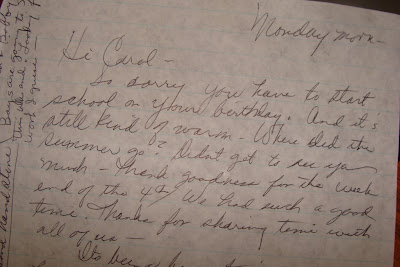 Monday morn-
Hi Carol -
So sorry you have to start
school on your birthday. And it's
still kind of warm - Where did the
summer go? Didn't get to see you
much - Thank goodness for the week
end of the 4th. We had such a good
time. Thanks for sharing time with
all of us -
Its been
Boys are go